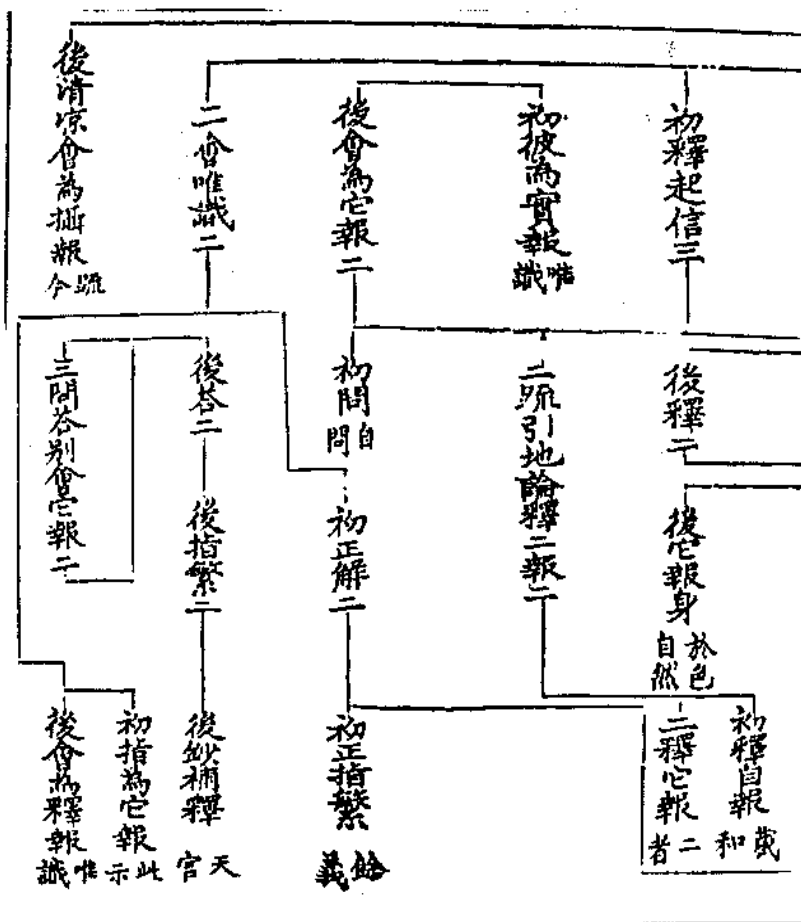 初釋起信三
初彼為實報二 唯識
後會為它報二
二會唯識二
後清涼會為攝報 疏今
後釋二
二疏引地論釋二報二
初問 自問
後荅二
三問荅別會它報二
後它報身 於色自然
初正解二
後指繁二
初釋自報 或和
二釋它報 二者
初正指繁 餘義
後鈔補釋 天宮
初指為它報 此示
後會為釋報 唯識